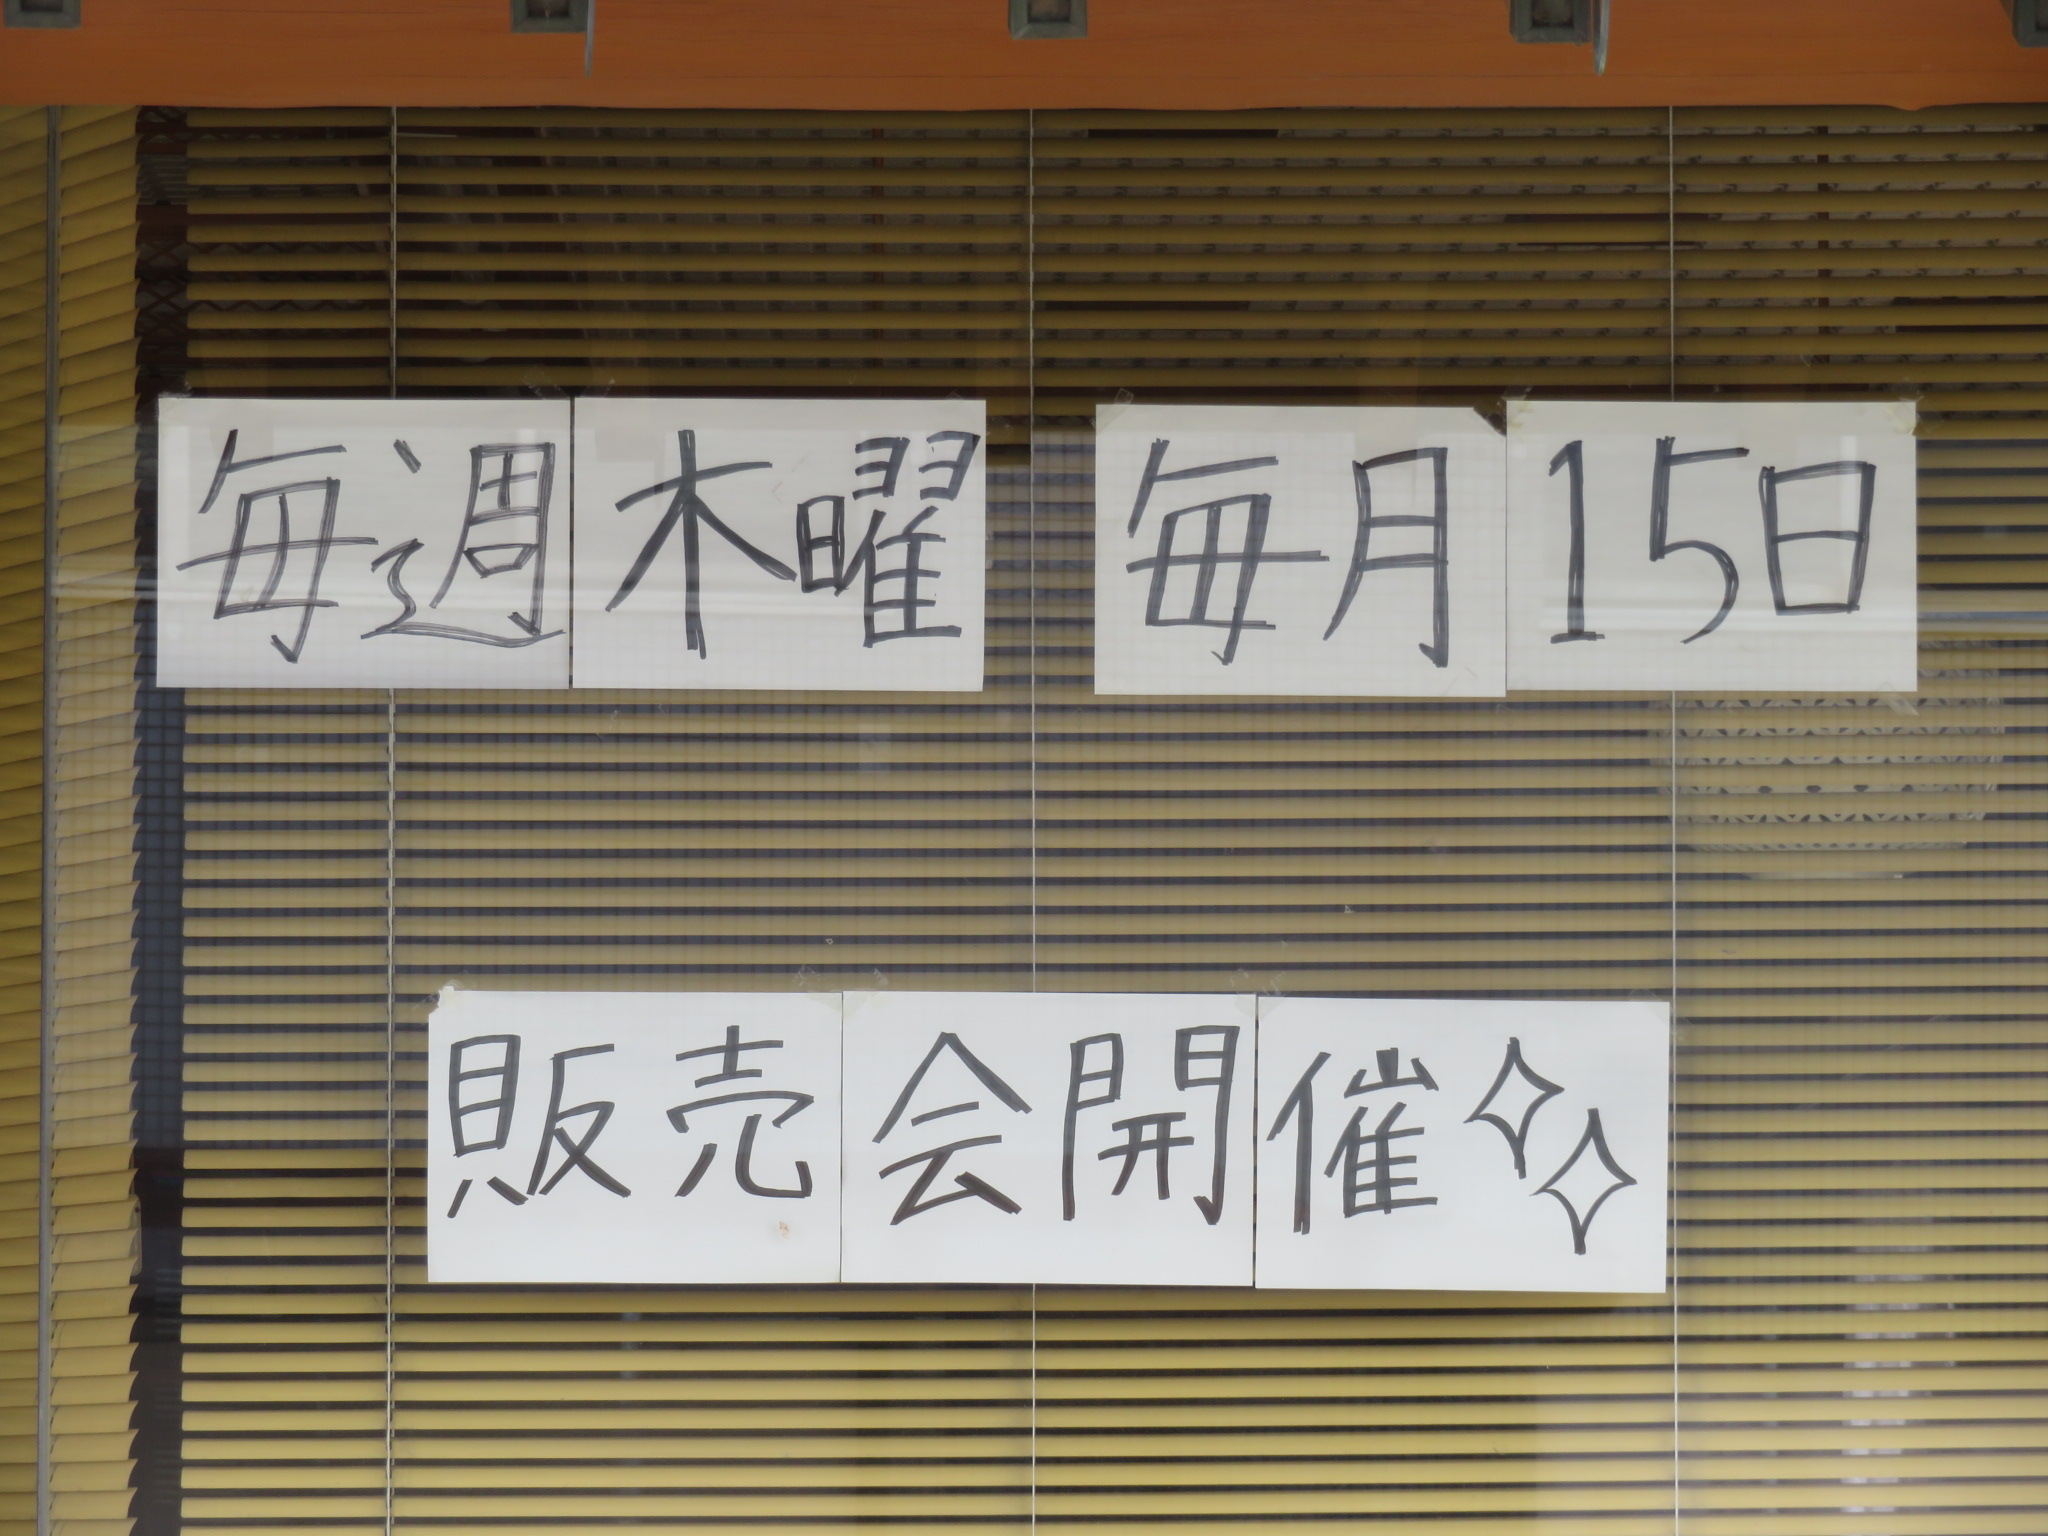 毎週木曜 毎月15日
販売会開催